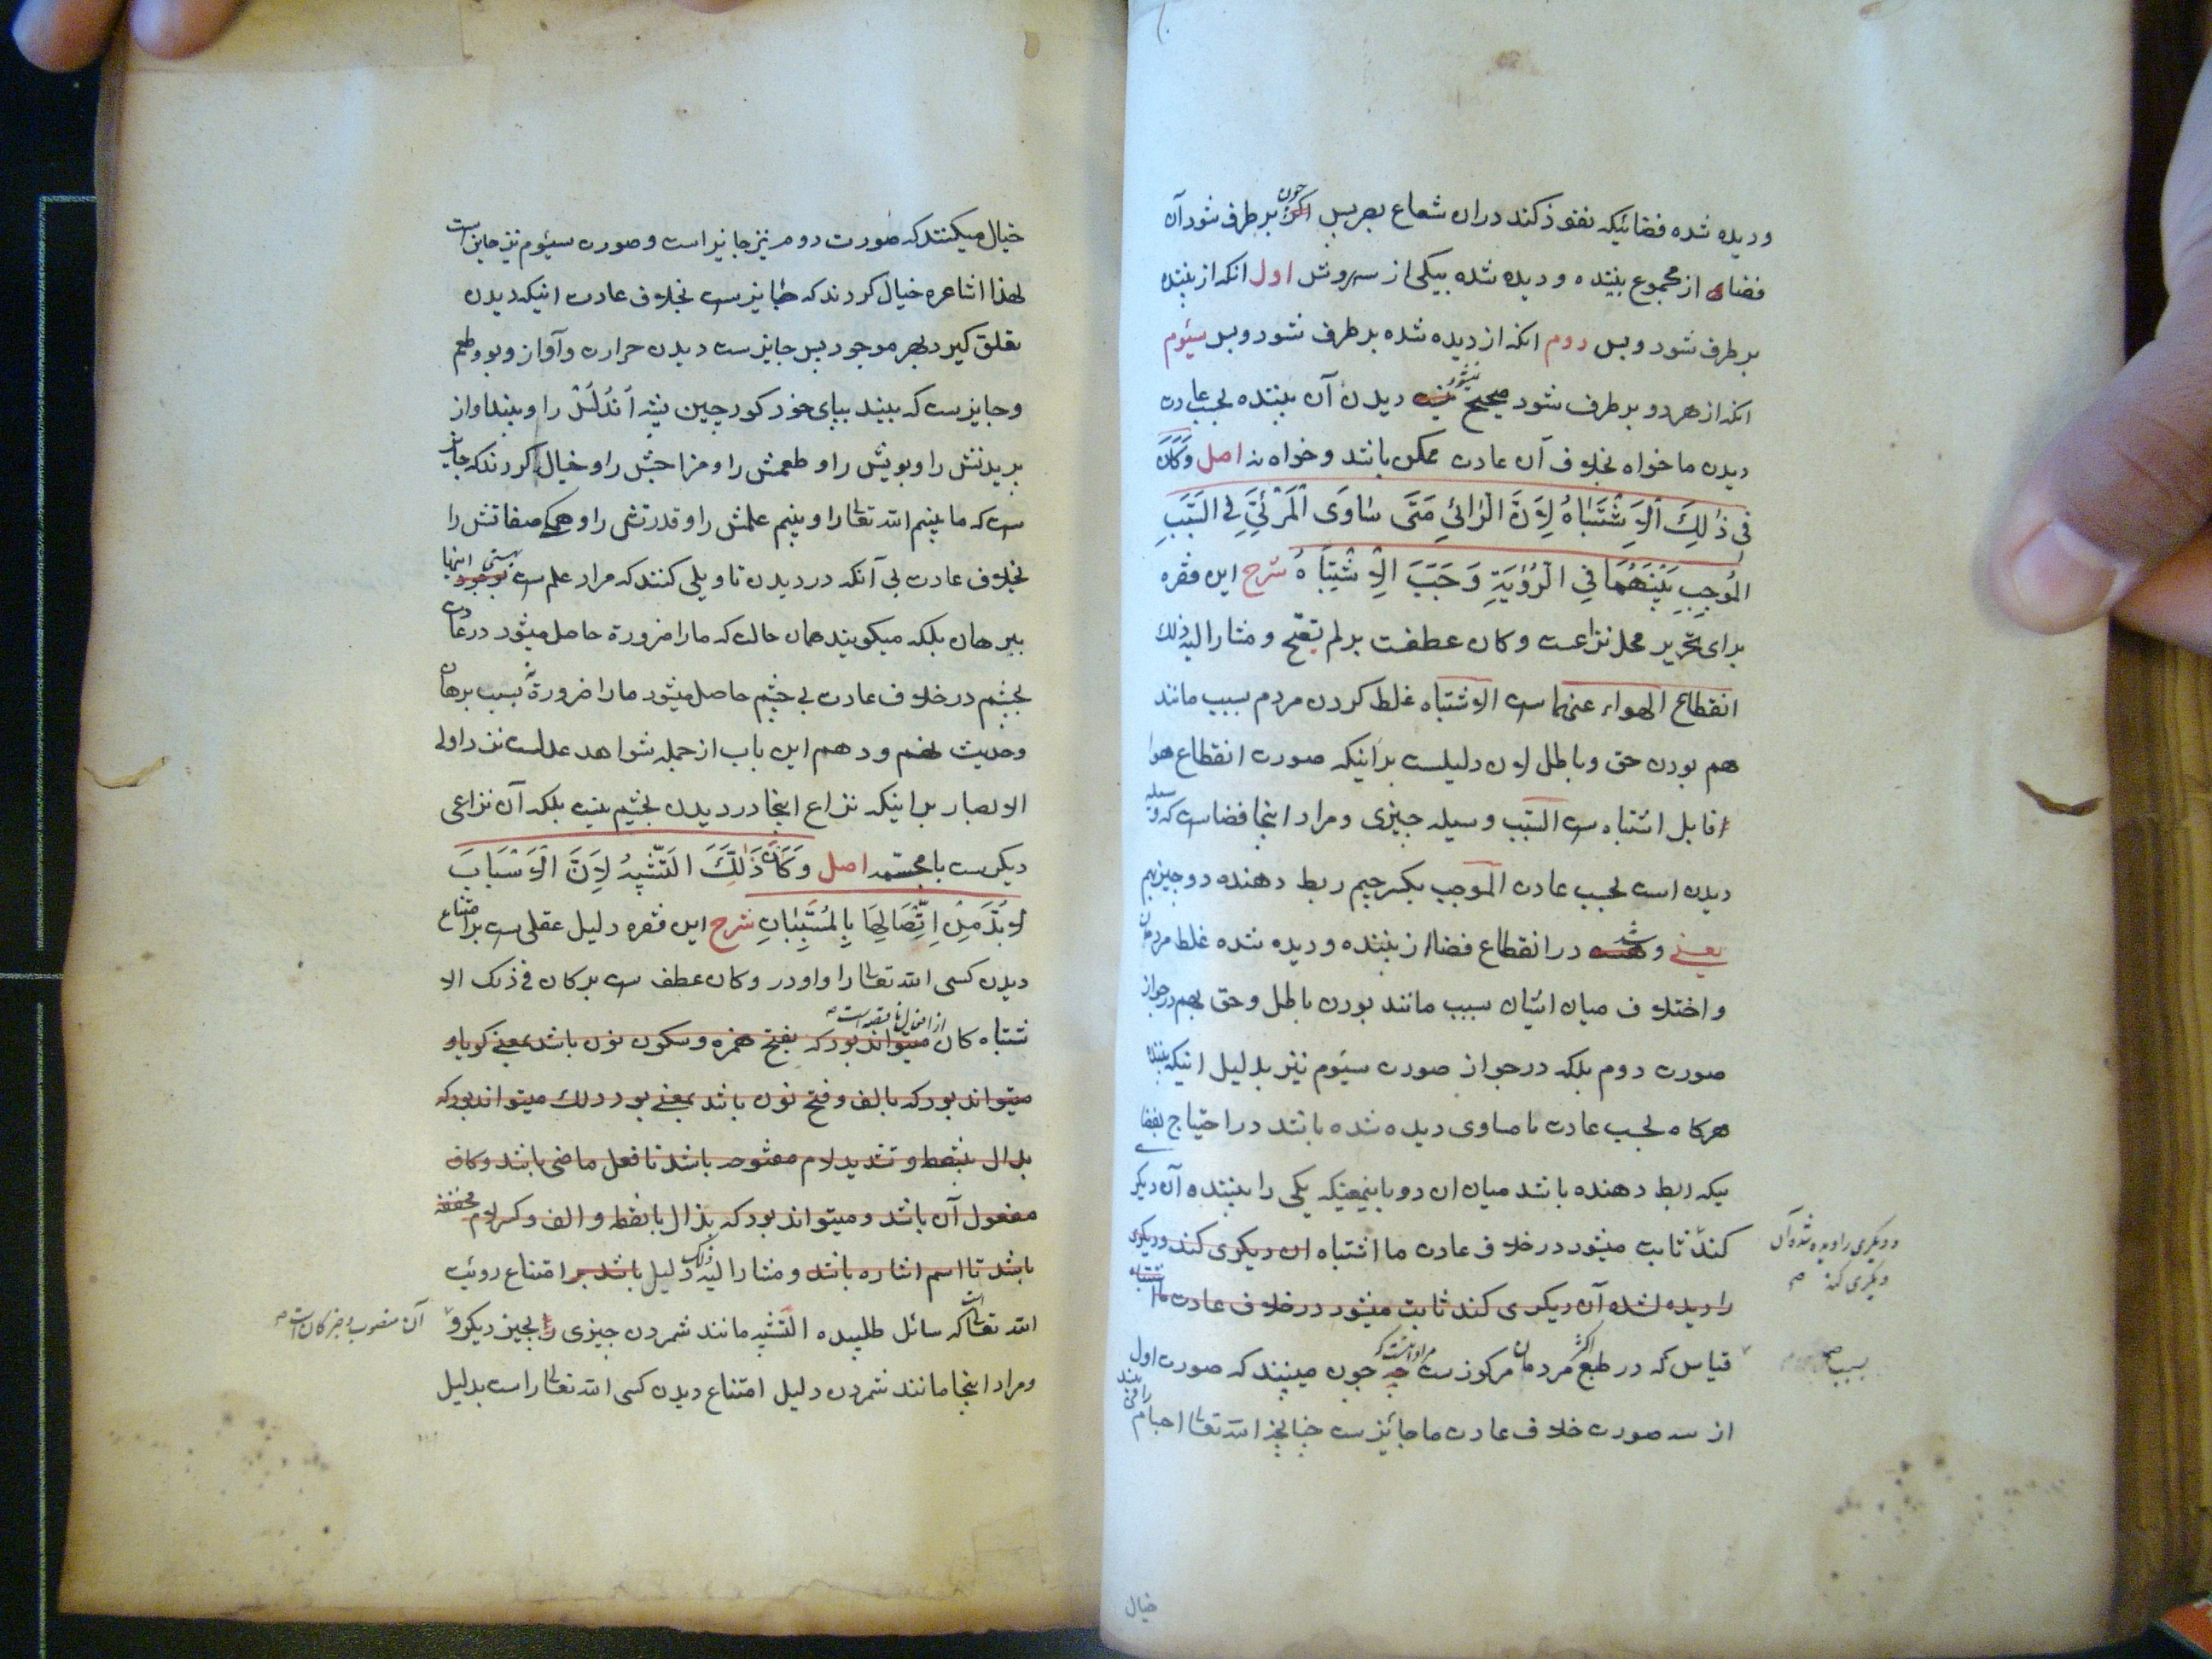 و دیده شده فضائیکه نفوذ کند دران شعاع بصر پس چون بر طرف شود آن
فضا از مجموع بیننده و دیده شده بیکی از سه روش اول انکه از بیننده
بر طرف شود و بس دوم انکه از دیده شده بر طرف شود و بس سیّوم
انکه از هر دو بر طرف شود صحیح نیست دیدن آن بیننده بحسب عادت
دیدن ما خواه بخلاف آن عادت ممکن باشد و خواه نه اصل وَکَانَ
فِي ذٰلِكَ اَلْاِشْتَبٰاهُ لِاَنَّ الْرّائِيَ مَتَى سٰاوَى الْمَرْئِيَّ فِي السَّبَبِ
الْمُوجِبِ بَيْنَهُمَا فِي الرُّؤْيَةِ وَجَبَ الْاِشْتِبَاهُ شرح این فقره
برای تحریر محل نزاعست و کان عطفست بر لم تصح و مشار الیه ذلك
انقطاع الهواء عنهماست الاشتباه غلط کردن مردم بسبب مانند
هم بودن حق و باطل لان دلیلست براینکه صورت انقطاع هوا
قابل اشتباه ست السّبب وسیله چیزی و مراد اینجا فضاست که وسیله
دیدن است بحسب عادت الموجب بکسر جیم ربط دهنده دو چیز بهم
یعنی و در انقطاع فضا از بیننده و دیده شده غلط مردمان
و اختلاف میان ایشان بسبب مانند بودن باطل و حق بهم در جواز
صورت دوم بلکه در جواز صورت سیّوم نیز بدلیل اینکه بیننده
هرکاه بحسب عادت ما مساوی دیده شده باشد در احتیاج بفضا
ییکه ربط دهنده باشد میان ان دو باینمعنیکه یکی را بیننده آن دیکر
کند ثابت میشود در خلاف عادت ما اشتباه ان دیکری کند و دیکری
و دیکری را دیده شده آن
دیکری کند
را دیده شده آن دیکری کند ثابت میشود در خلاف عادت ما اشتباه
قیاس که در طبع اکثر مردمان مرکوزست چون میبینند که صورت اول
بسبب
از سه صورت خلاف عادت ما جائیزست چنانچه الله تعالی اجسام را
خیال
خیال میکنند که صورت دوم نیز جایز است و صورت سیّوم نیز جایز است
لهذا اشاعره خیال کردند که جایزست بخلاف عادت اینکه دیدن
تعلق کیرد بهر موجود پس جایزست دیدن حرارت و آواز و بو و طعم
و جایزست که بیند بپای خود کور چین پشه اَنْدُلُسْ را و بیند اواز
پریدنش را و بویش را و طعمش را و مزاجش را و خیال کردند که جایز
ست که ما بینیم الله تعالی را و بینیم علمش را و قدرتش را و همکی صفاتش را
بخلاف عادت بی آنکه در دیدن تاویلی کنند که مراد علم ست اینها
ببرهان بلکه میکویند همان حالت که ما را ضرورة حاصل میشود در عادت
بچشم در خلاف عادت بی چشم حاصل میشود ما را ضرورة نه بسبب برهان
و حدیث نهم و دهم این باب از جمله شواهد عدلست نزد اولی
الابصار براینکه نزاع اینجا در دیدن بچشم نیست بلکه آن نزاعی
دیکرست با مجسّمه اصل وَكَانَ ذٰلِكَ التَّشْبِيهُ لِاَنَّ الْاَسْبَابَ
لَابُدَّ مِنْ اِتِّصَالِهَا بِالْمُسَبَّبَاتِ شرح این فقره دلیل عقلی ست بر امتناع
دیدن کسی الله تعالی را و اودر و کان عطف ست بر کان فی ذلک الا
شتباه کان از افعال ناقصه است میتواند بود که بفتح همزه و سکون نون باشد بمعنی کویا و
میتواند بود که بالف و فتح نون باشد بمعنی بود و ذلك میتواند بود که
بدال بینقطه و تشدید لام مفتوحه باشد تا فعل ماضی باشد و کاف
مفعول آن باشد و میتواند بود که بذال با نقطه و الف و کسر لام مخففه
باشد تا اسم اشاره باشد و مشار الیه ذلک دلیل باشد بر امتناع رویت
الله تعالی که سائل طلبیده التّشبیه مانند شمردن چیزی را بچیز دیکر و
آن منصوب و خبر کان است
و مراد اینجا مانند شمردن دلیل امتناع دیدن کسی الله تعالی راست بدلیل